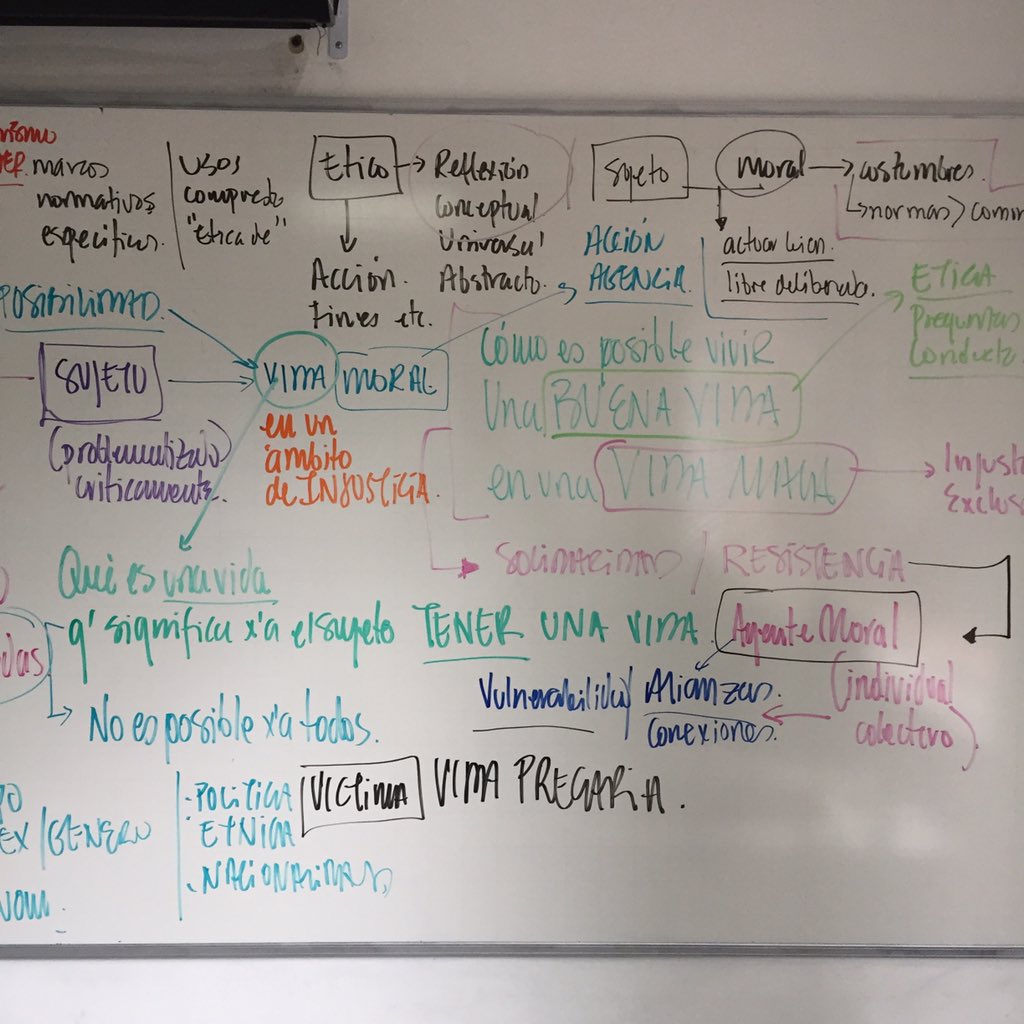 marcos
normativos
específicos.
USOS
compuesto
"ética de"
Etico
Reflexión
Conceptual
Universal
Abstracto.
Acción.
fines etc.
Sujeto
moral
costumbres.
normas
actuar bien.
libre deliberado.
ACCIÓN
AGENCIA.
ETICA
Preguntas
Conducta
POSIBILIDAD
SUJETO
(problematizado)
críticamente.
VIDA MORAL
en un
ámbito
de INJUSTICIA.
Cómo es posible vivir
Una BUENA VIDA
en una VIDA MALA
SOLIDARIDAD / RESISTENCIA
Qué es una vida
q' significa x'a el sujeto TENER UNA VIDA.
Agente Moral
(individual
colectivo)
Vulnerabilidad / Alianzas.
Conexiones.
No es posible x'a todos.
/GENERO
· POLITICA
· ETNICA
· NACIONALIDAD
VICTIMA VIDA PRECARIA.